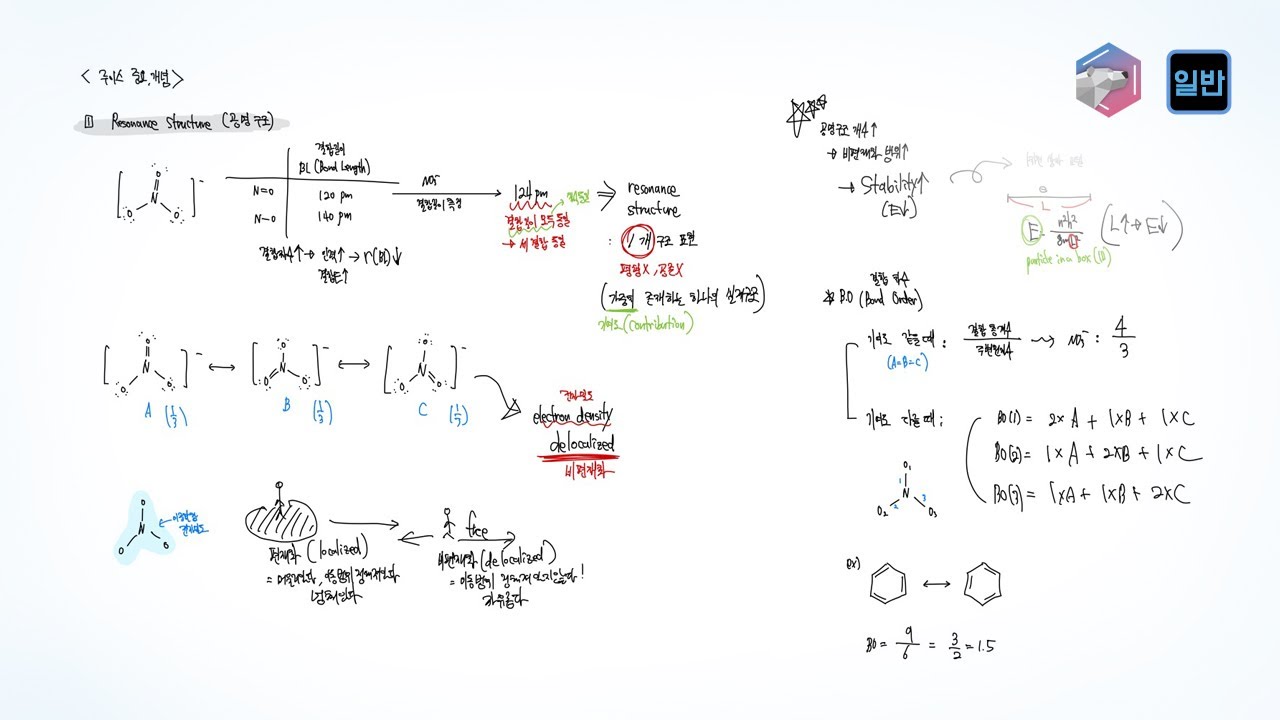 < 루이스 중요 개념 >
① Resonance Structure (공명 구조)
결합길이
BL (Bond Length)
N=O 120 pm
N-O 140 pm
NO3-
결합길이 측정
124 pm
결합길이 모두 동일
→ 세 결합 동일
⇒ resonance structure
: 1개 구조 표현
평형X, 공존X
(가중평균 존재하는 하나의 실제구조)
기여도 (contribution)
결합차수↑ → 인력↑ → r(BL)↓
결합E↑
A (1/3) ↔ B (1/3) ↔ C (1/3)
전자밀도
electron density
delocalized
비편재화
편재화 (localized)
free
비편재화 (delocalized)
자유롭다
공명구조 개수↑
→ 비편재화 범위↑
→ Stability↑
(E↓)
L
E = n²h²/8mL² (L↑→E↓)
particle in a box (1D)
결합 차수
* B.O (Bond Order)
기여도 같을 때 : 결합 총개수/주변원자수 → NO3- : 4/3
(A=B=C)
기여도 다를 때 ;
BO(1) = 2×A + 1×B + 1×C
BO(2) = 1×A + 2×B + 1×C
BO(3) = 1×A + 1×B + 2×C
O1
1
N
2 3
O2 O3
ex)
BO = 9/6 = 3/2 = 1.5
일반